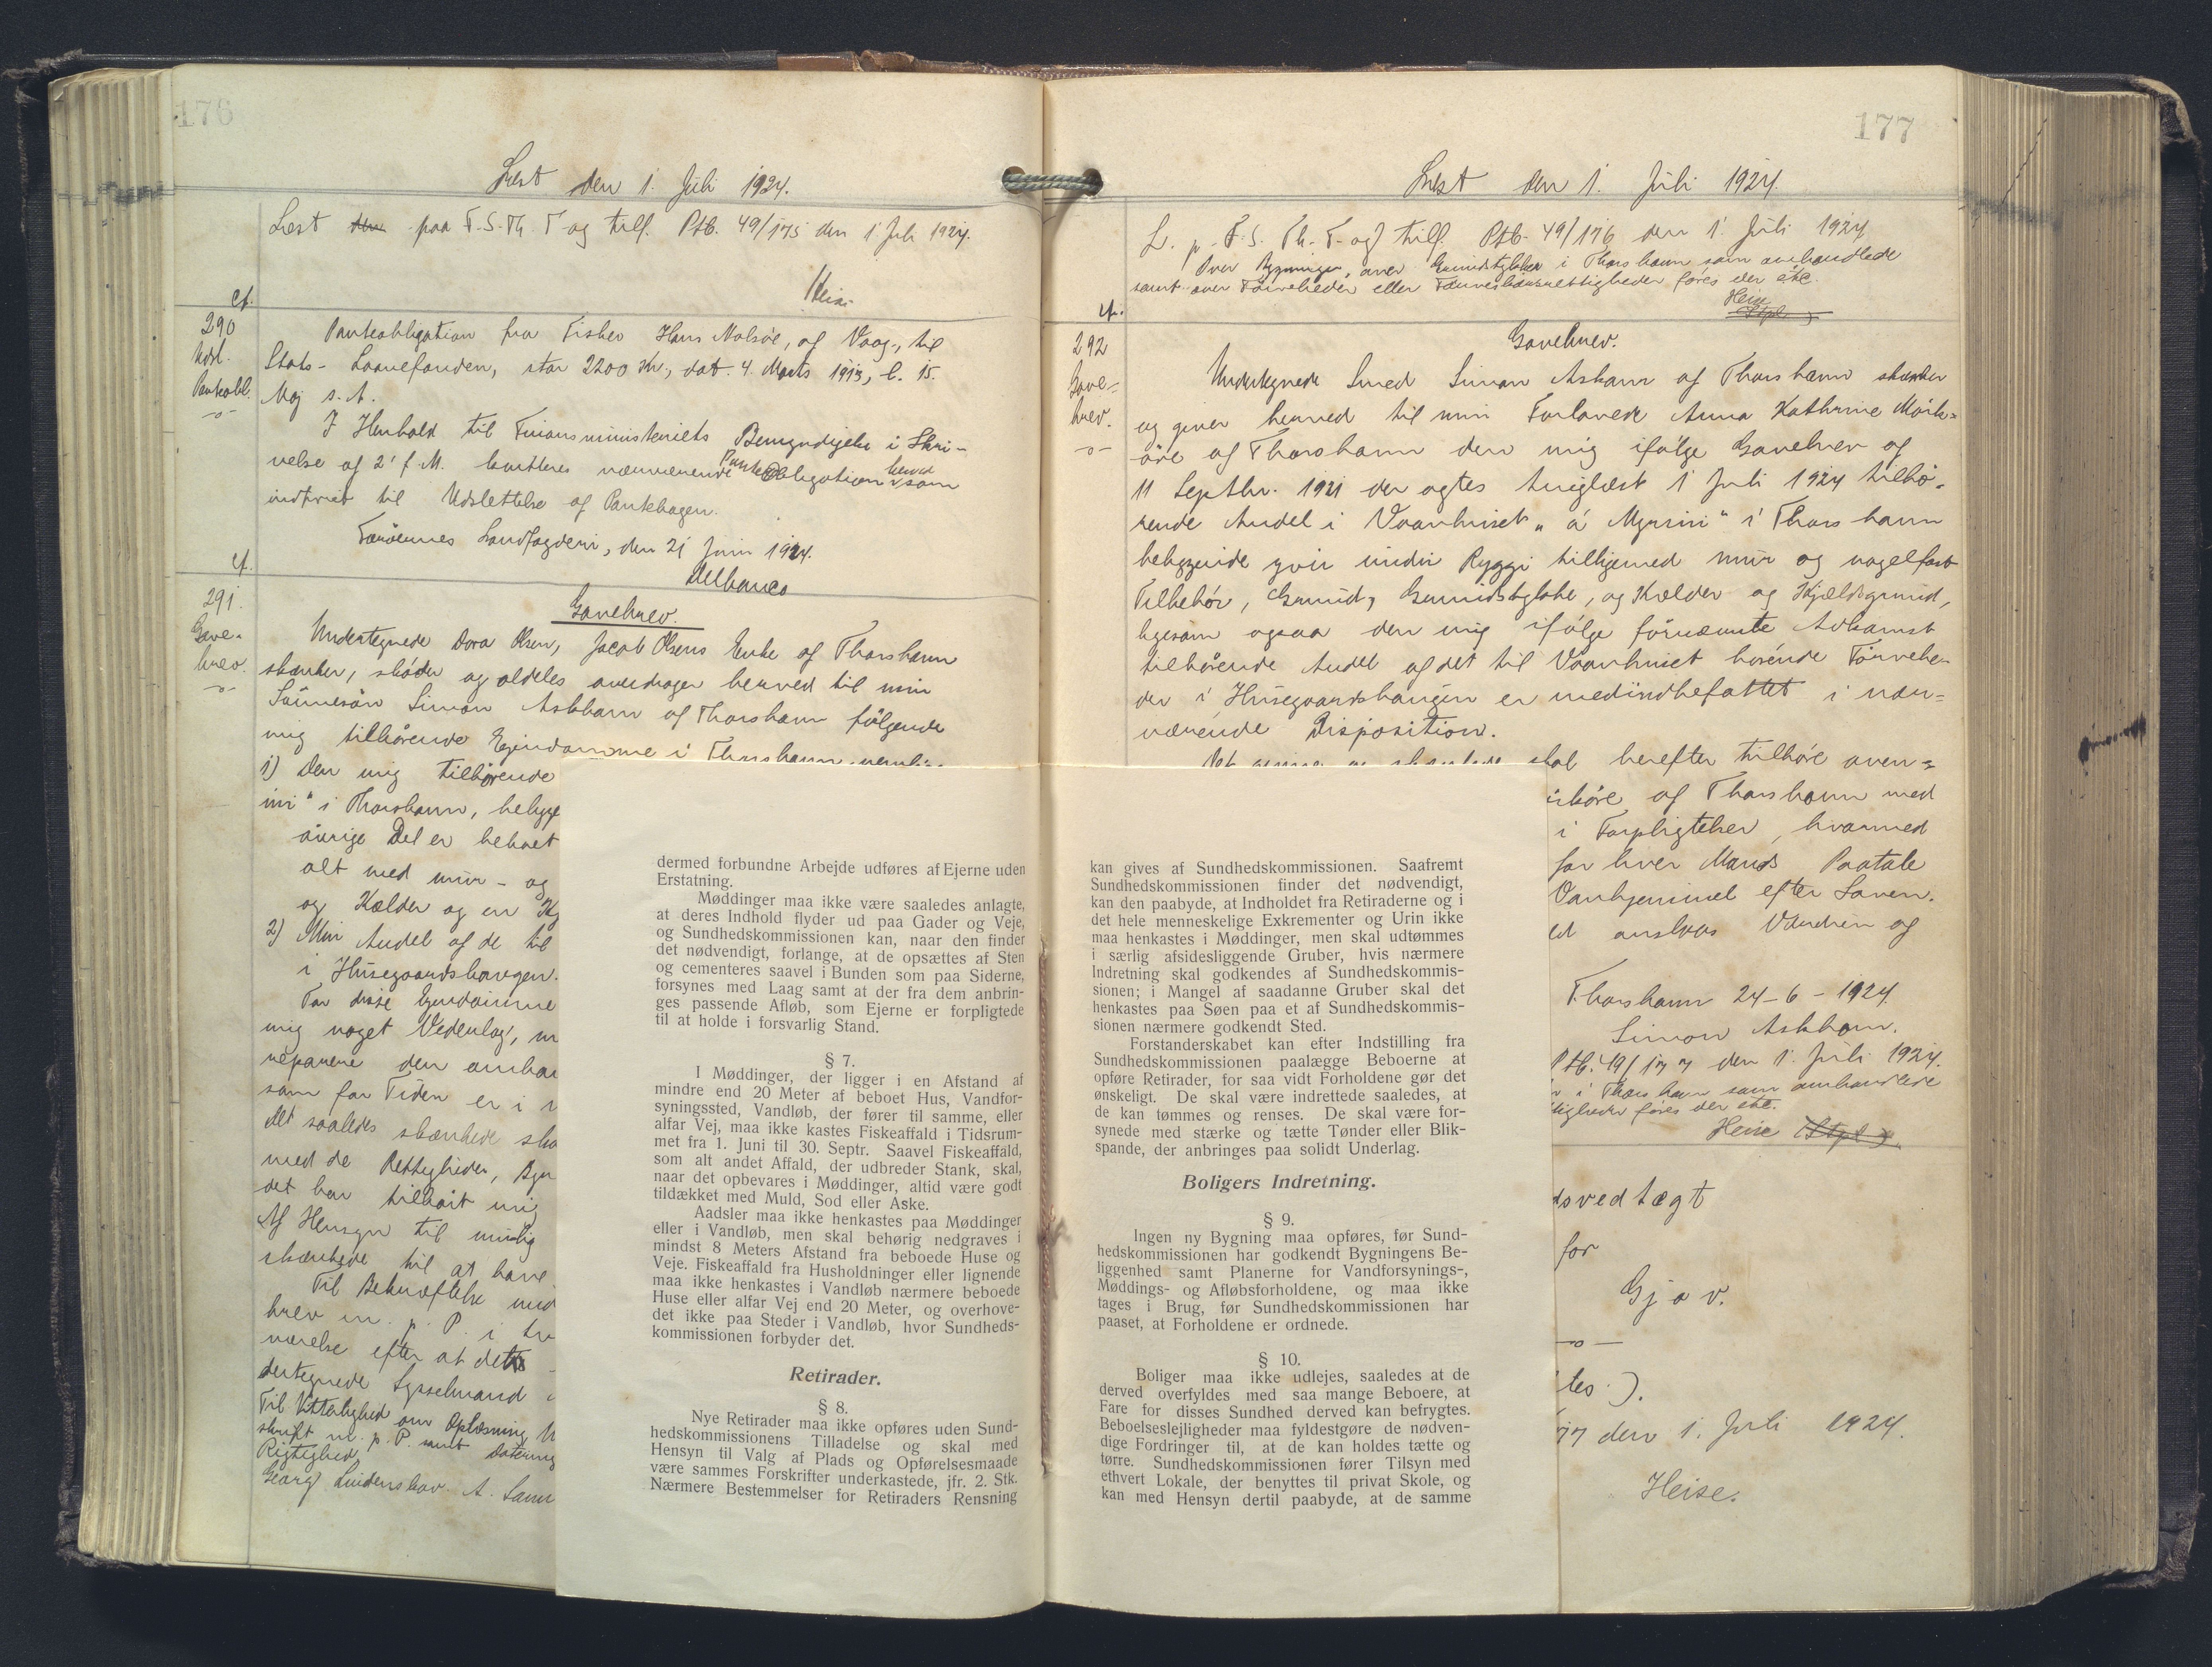 176
Læst den 1. Juli 1924.
Læst den paa T. S. Th. T og tilf. Ptb. 49/175 den 1 Juli 1924.
Heise
cf.
290
Udsl.
Panteobl.
Panteobligation fra Fisker Hans Nolsøe, af Vaag, til
Stats-Laanefonden, stor 2200 Kr., dat. 4. Marts 1913, l. 15.
Maj s. A.
I Henhold til Finansministeriets Bemyndigelse i Skri-
velse af 2' f. M. kvitteres nærværende Pante Obligation herved som
indfriet til Udslettelse af Pantebogen.
Færøernes Landfogderi, den 21 Juni 1924.
cf.
291.
Gave-
brev.
Gavebrev.
Undertegnede Dora Olsen, Jacob Olsens Enke af Thorshavn
skænker, skøder og aldeles overdrager herved til min
Sønnesøn Simon Askham af Thorshavn følgende
mig tilhørende Ejendomme i Thorshavn, nemlig
1) Den mig tilhørende
ini" i Thorshavn, belig
øvrige Del er beboet
alt med mur- og
og Kælder og en Kj
2) Min Andel af de til
i Husegaardshaugen.
For disse Ejendomme
mig noget Vederlag, m
reparere den omha
som for Tiden er i
Det saaledes skænkede ska
med de Rettigheder, Byr
det har tilhørt mig
Af Hensyn til mulig
skænkede til at have
Til Bekræftelse med
brev m. p. P. i
værelse efter at dette
dertegnede Sysselmand
Til Vitterlighed om Oplæsning, U
skrift m. p. P. samt Datering
Rigtighed
Georg Lindenskov. A.
dermed forbundne Arbejde udføres af Ejerne uden
Erstatning.
Møddinger maa ikke være saaledes anlagte,
at deres Indhold flyder ud paa Gader og Veje,
og Sundhedskommissionen kan, naar den finder
det nødvendigt, forlange, at de opsættes af Sten
og cementeres saavel i Bunden som paa Siderne,
forsynes med Laag samt at der fra dem anbrin-
ges passende Afløb, som Ejerne er forpligtede
til at holde i forsvarlig Stand.
§ 7.
I Møddinger, der ligger i en Afstand af
mindre end 20 Meter af beboet Hus, Vandfor-
syningssted, Vandløb, der fører til samme, eller
alfar Vej, maa ikke kastes Fiskeaffald i Tidsrum-
met fra 1. Juni til 30. Septr. Saavel Fiskeaffald,
som alt andet Affald, der udbreder Stank, skal,
naar det opbevares i Møddinger, altid være godt
tildækket med Muld, Sod eller Aske.
Aadsler maa ikke henkastes paa Møddinger
eller i Vandløb, men skal behørig nedgraves i
mindst 8 Meters Afstand fra beboede Huse og
Veje. Fiskeaffald fra Husholdninger eller lignende
maa ikke henkastes i Vandløb nærmere beboede
Huse eller alfar Vej end 20 Meter, og overhove-
det ikke paa Steder i Vandløb, hvor Sundheds-
kommissionen forbyder det.
Retirader.
§ 8.
Nye Retirader maa ikke opføres uden Sund-
hedskommissionens Tilladelse og skal med
Hensyn til Valg af Plads og Opførelsesmaade
være sammes Forskrifter underkastede, jfr. 2. Stk.
Nærmere Bestemmelser for Retiraders Rensning
177
Læst den 1. Juli 1924.
L. p. T. S. Th. T. og tilf. Ptb. 49/176 den 1' Juli 1924
Over Bygningen, over Grundstykker i Thorshavn som omhandlede
samt over Tørveheder eller Tørveskærsrettigheder føres der ikke.
Heise
cf.
292
Gave-
brev.
Gavebrev.
Undertegnede Smed Simon Askham af Thorshavn skænker
og giver herved til min Forlovede Anna Kathrine Mörk-
øre af Thorshavn den mig ifølge Gavebrev af
11 Septbr. 1921 der agtes tinglæst 1 Juli 1924 tilhø-
rende Andel i Vaanhuset „á Mýrini" i Thorshavn
beliggende yvir undir Ryggi tilligemed mur og nagelfast
Tilbehør, Grund, Grundstykke, og Kælder og Kjældegrund,
ligesom ogsaa den mig ifølge førnævnte Adkomst
tilhørende Andel af det til Vaanhuset hørende Tørvehe-
der i Husegaardshaugen er medindbefattet i nær-
værende Disposition.
skal herefter tilhøre oven-
rkøre af Thorshavn med
i Forpligtelser, hvormed
for hver Mands Paatale
Vanhjemmel efter Loven.
ed anslaas Værdien og
Thorshavn 24-6-1924.
Simon Askham.
Ptb. 49/177 den 1' Juli 1924.
i Thorshavn som omhandlede
tigheder føres der ikke.
Heise (Stpl.)
dsvedtægt
for
Gjov.
tes.).
77 den 1. Juli 1924.
Heise.
kan gives af Sundhedskommissionen. Saafremt
Sundhedskommissionen finder det nødvendigt,
kan den paabyde, at Indholdet fra Retiraderne og i
det hele menneskelige Exkrementer og Urin ikke
maa henkastes i Møddinger, men skal udtømmes
i særlig afsidesliggende Gruber, hvis nærmere
Indretning skal godkendes af Sundhedskommis-
sionen; i Mangel af saadanne Gruber skal det
henkastes paa Søen paa et af Sundhedskommis-
sionen nærmere godkendt Sted.
Forstanderskabet kan efter Indstilling fra
Sundhedskommissionen paalægge Beboerne at
opføre Retirader, for saa vidt Forholdene gør det
ønskeligt. De skal være indrettede saaledes, at
de kan tømmes og renses. De skal være for-
synede med stærke og tætte Tønder eller Blik-
spande, der anbringes paa solidt Underlag.
Boligers Indretning.
§ 9.
Ingen ny Bygning maa opføres, før Sund-
hedskommissionen har godkendt Bygningens Be-
liggenhed samt Planerne for Vandforsynings-,
Møddings- og Afløbsforholdene, og maa ikke
tages i Brug, før Sundhedskommissionen har
paaset, at Forholdene er ordnede.
§ 10.
Boliger maa ikke udlejes, saaledes at de
derved overfyldes med saa mange Beboere, at
Fare for disses Sundhed derved kan befrygtes.
Beboelseslejligheder maa fyldestgøre de nødven-
dige Fordringer til, at de kan holdes tætte og
tørre. Sundhedskommissionen fører Tilsyn med
ethvert Lokale, der benyttes til privat Skole, og
kan med Hensyn dertil paabyde, at de samme